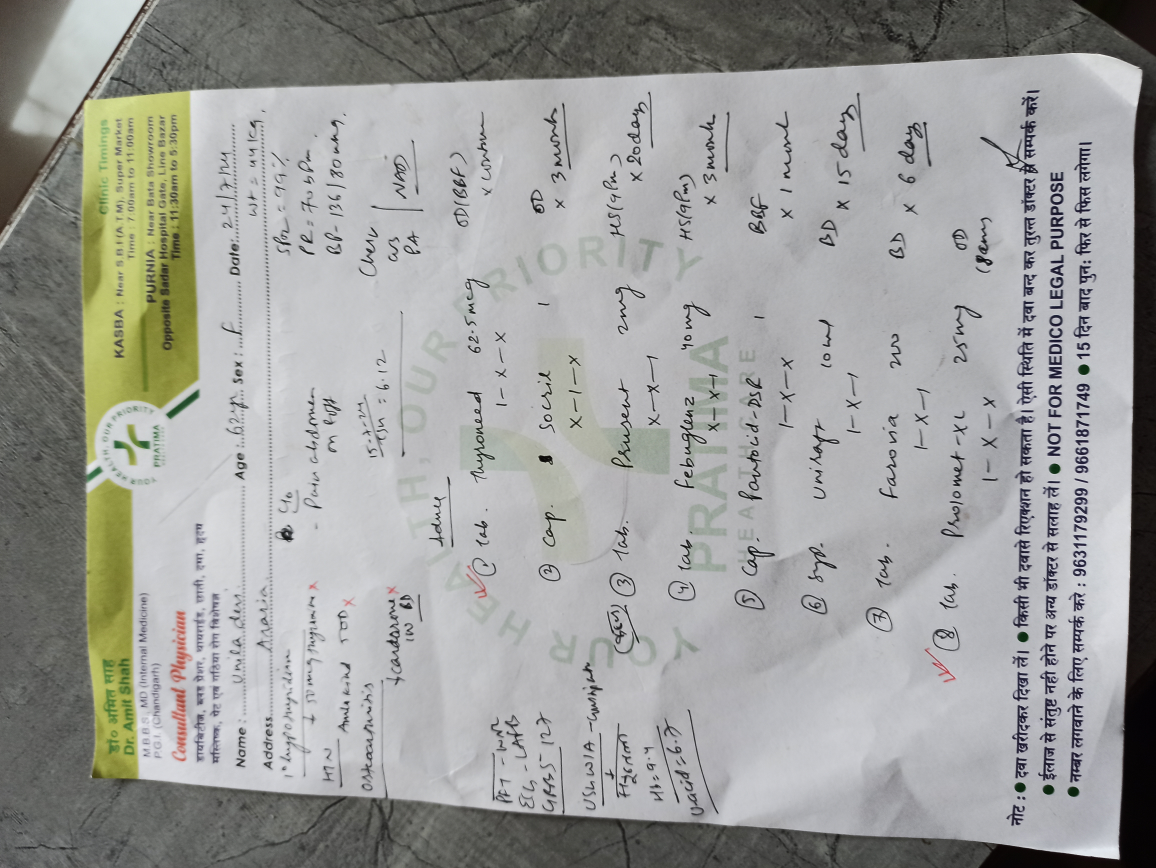 डा० अमित साह
Dr. Amit Shah
M.B.B.S., MD (Internal Medicine)
P.G.I. (Chandigarh)
Consultant Physician
डायबिटीज, ब्लड प्रेशर, थायराईड, छाती, दमा, हृदय
मस्तिष्क, पेट एवं गठिया रोग विशेषज्ञ
YOUR HEALTH, OUR PRIORITY
PRATIMA
Clinic Timings
KASBA : Near S.B.I (A.T.M), Super Market
Time : 7:00am to 11:00am
PURNIA : Near Bata Showroom
Opposite Sadar Hospital Gate, Line Bazar
Time : 11:30am to 5:30pm
Name : Unila devi Age : 62yr Sex : F Date: 24/7/24
Address Araria
wt = 44 kg
SPO2 = 99%
PR = 70 bpm
BP - 136/80 mmHg
Chest
CVS
PA
NAD
- Pain abdomen
on & off
15-7-24
TSH = 6.12
HTN
Amlokind 5 OD
Osteoarthritis
+ cardarone
BD
Advice
① Tab. Thyroneed 62.5 mcg OD (BBF)
1-x-x
② Cap. Socril 1 OD
x-1-x x 3 month
③ Tab. Prusent 2mg HS (9Pm)
x-x-1 x 20 day
④ Tab. Febuglenz 40mg HS (9Pm)
x-x-1 x 3 month
⑤ Cap. Pantoid-DSR 1 BBF
1-x-x x 1 month
⑥ Syp. 10ml BD
1-x-1 x 15 day
⑦ Tab. Farovia 200 BD
1-x-1 x 6 day
⑧ Tab. Prolomet-XL 25mg OD
1-x-x (8am)
GRBS - 127
USG W/A
Hb = 9.4
U acid = 6.7
YOUR HEALTH, OUR PRIORITY
PRATIMA
HEALTHCARE
नोट : ● दवा खरीदकर दिखा लें। ● किसी भी दवासे रिएक्शन हो सकता है। ऐसी स्थिति में दवा बन्द कर तुरन्त डॉक्टर से सम्पर्क करें।
● ईलाज से संतुष्ट नही होने पर अन्य डॉक्टर से सलाह लें। ● NOT FOR MEDICO LEGAL PURPOSE
● नम्बर लगवाने के लिए सम्पर्क करे : 9631179299 / 9661871749 ● 15 दिन बाद पुन: फिर से फिस लगेगा।